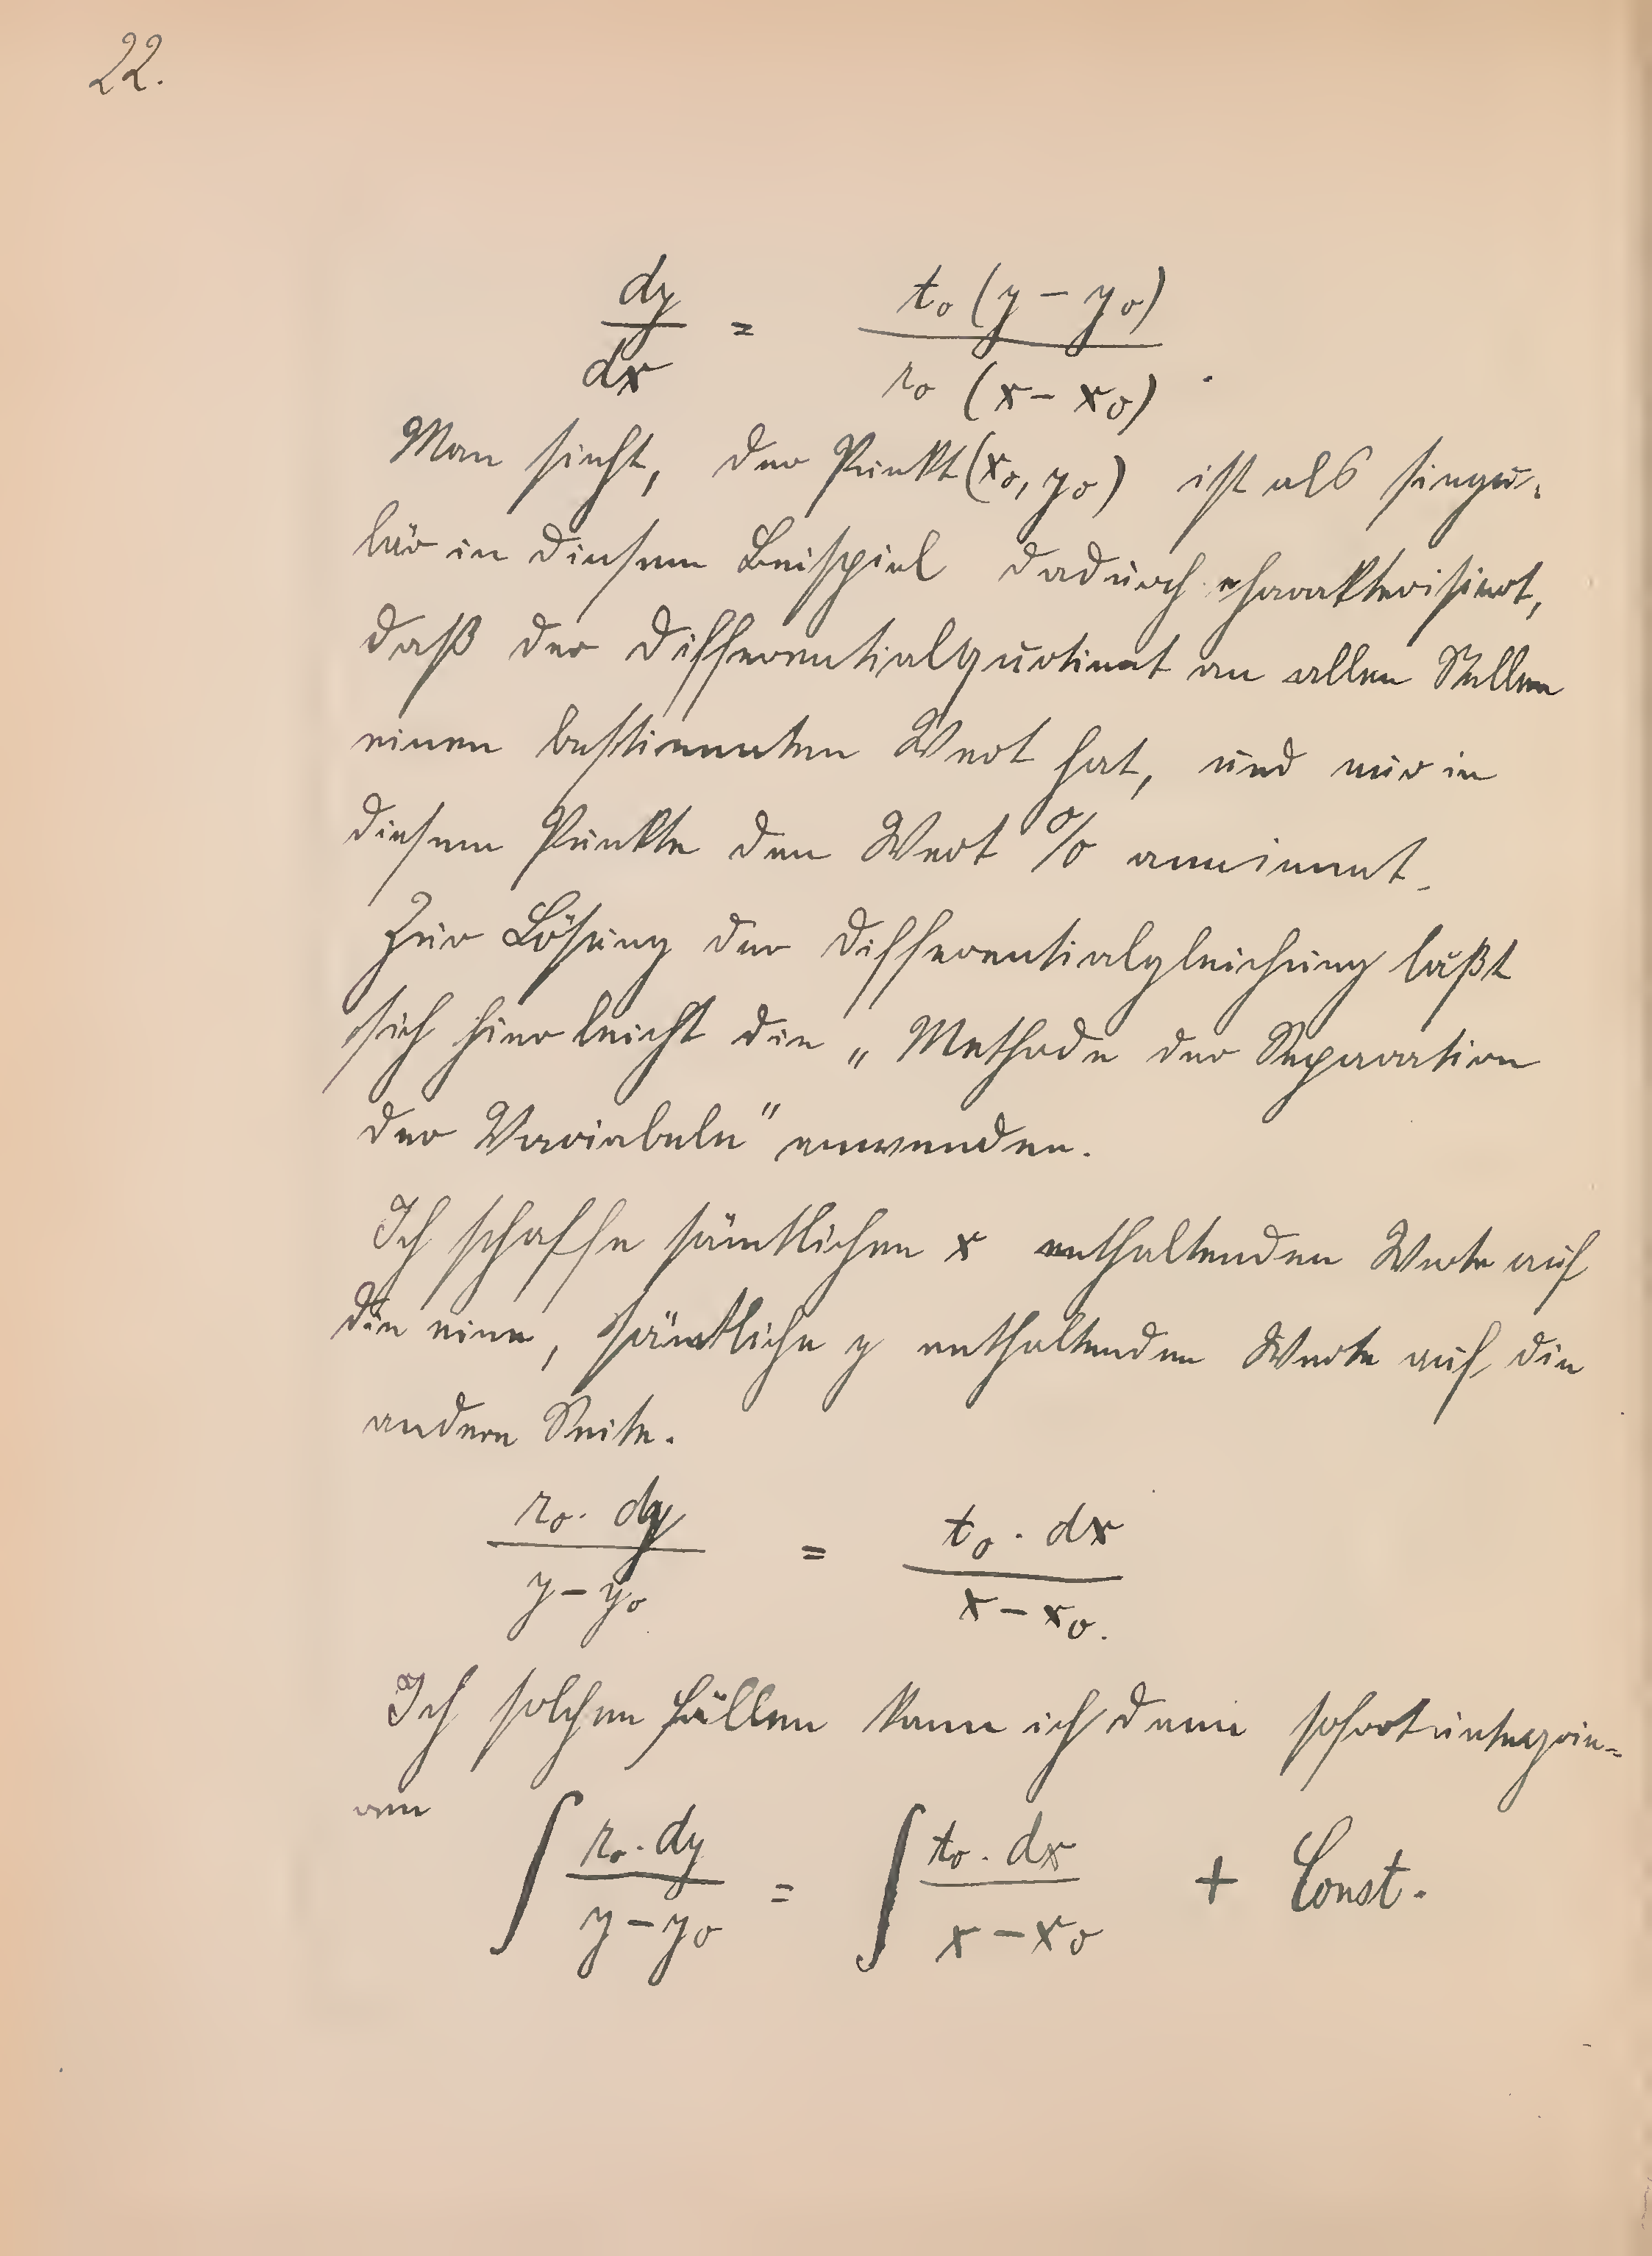 22.
dy/dx = t₀ (y − y₀) / r₀ (x − x₀) .
Man sieht, der Punkt (x₀, y₀) ist als singu-
lär in diesem Beispiel dadurch charakterisiert,
daß der Differentialquotient an allen Stellen
einen bestimmten Wert hat, und nur in
diesem Punkte den Wert 0/0 annimmt.
Zur Lösung der Differentialgleichung läßt
sich hier leicht die „Methode der Separation
der Variabeln" anwenden.
Ich schaffe sämtlichen x enthaltenden Werte auf
die eine, sämtliche y enthaltenden Werte auf die
andere Seite.
r₀ · dy / y − y₀ = t₀ · dx / x − x₀.
Ich solchen Fällen kann ich dann sofort integrie-
ren ∫ r₀ · dy / y − y₀ = ∫ t₀ · dx / x − x₀ + Const.